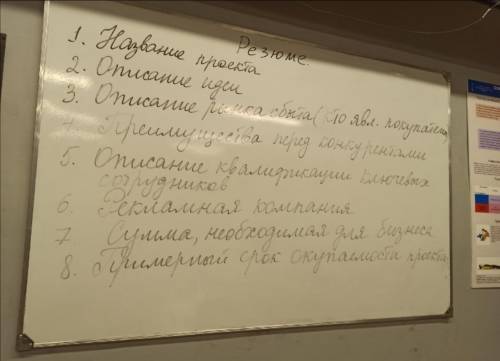 Резюме.
1. Название проекта
2. Описание идеи
3. Описание рынка сбыта (кто явл. покупателем
4. Преимущества перед конкурентами
5. Описание квалификации ключевых
сотрудников
6. Рекламная компания
7 Сумма, необходимая для бизнеса
8. Примерный срок окупаемости проекта